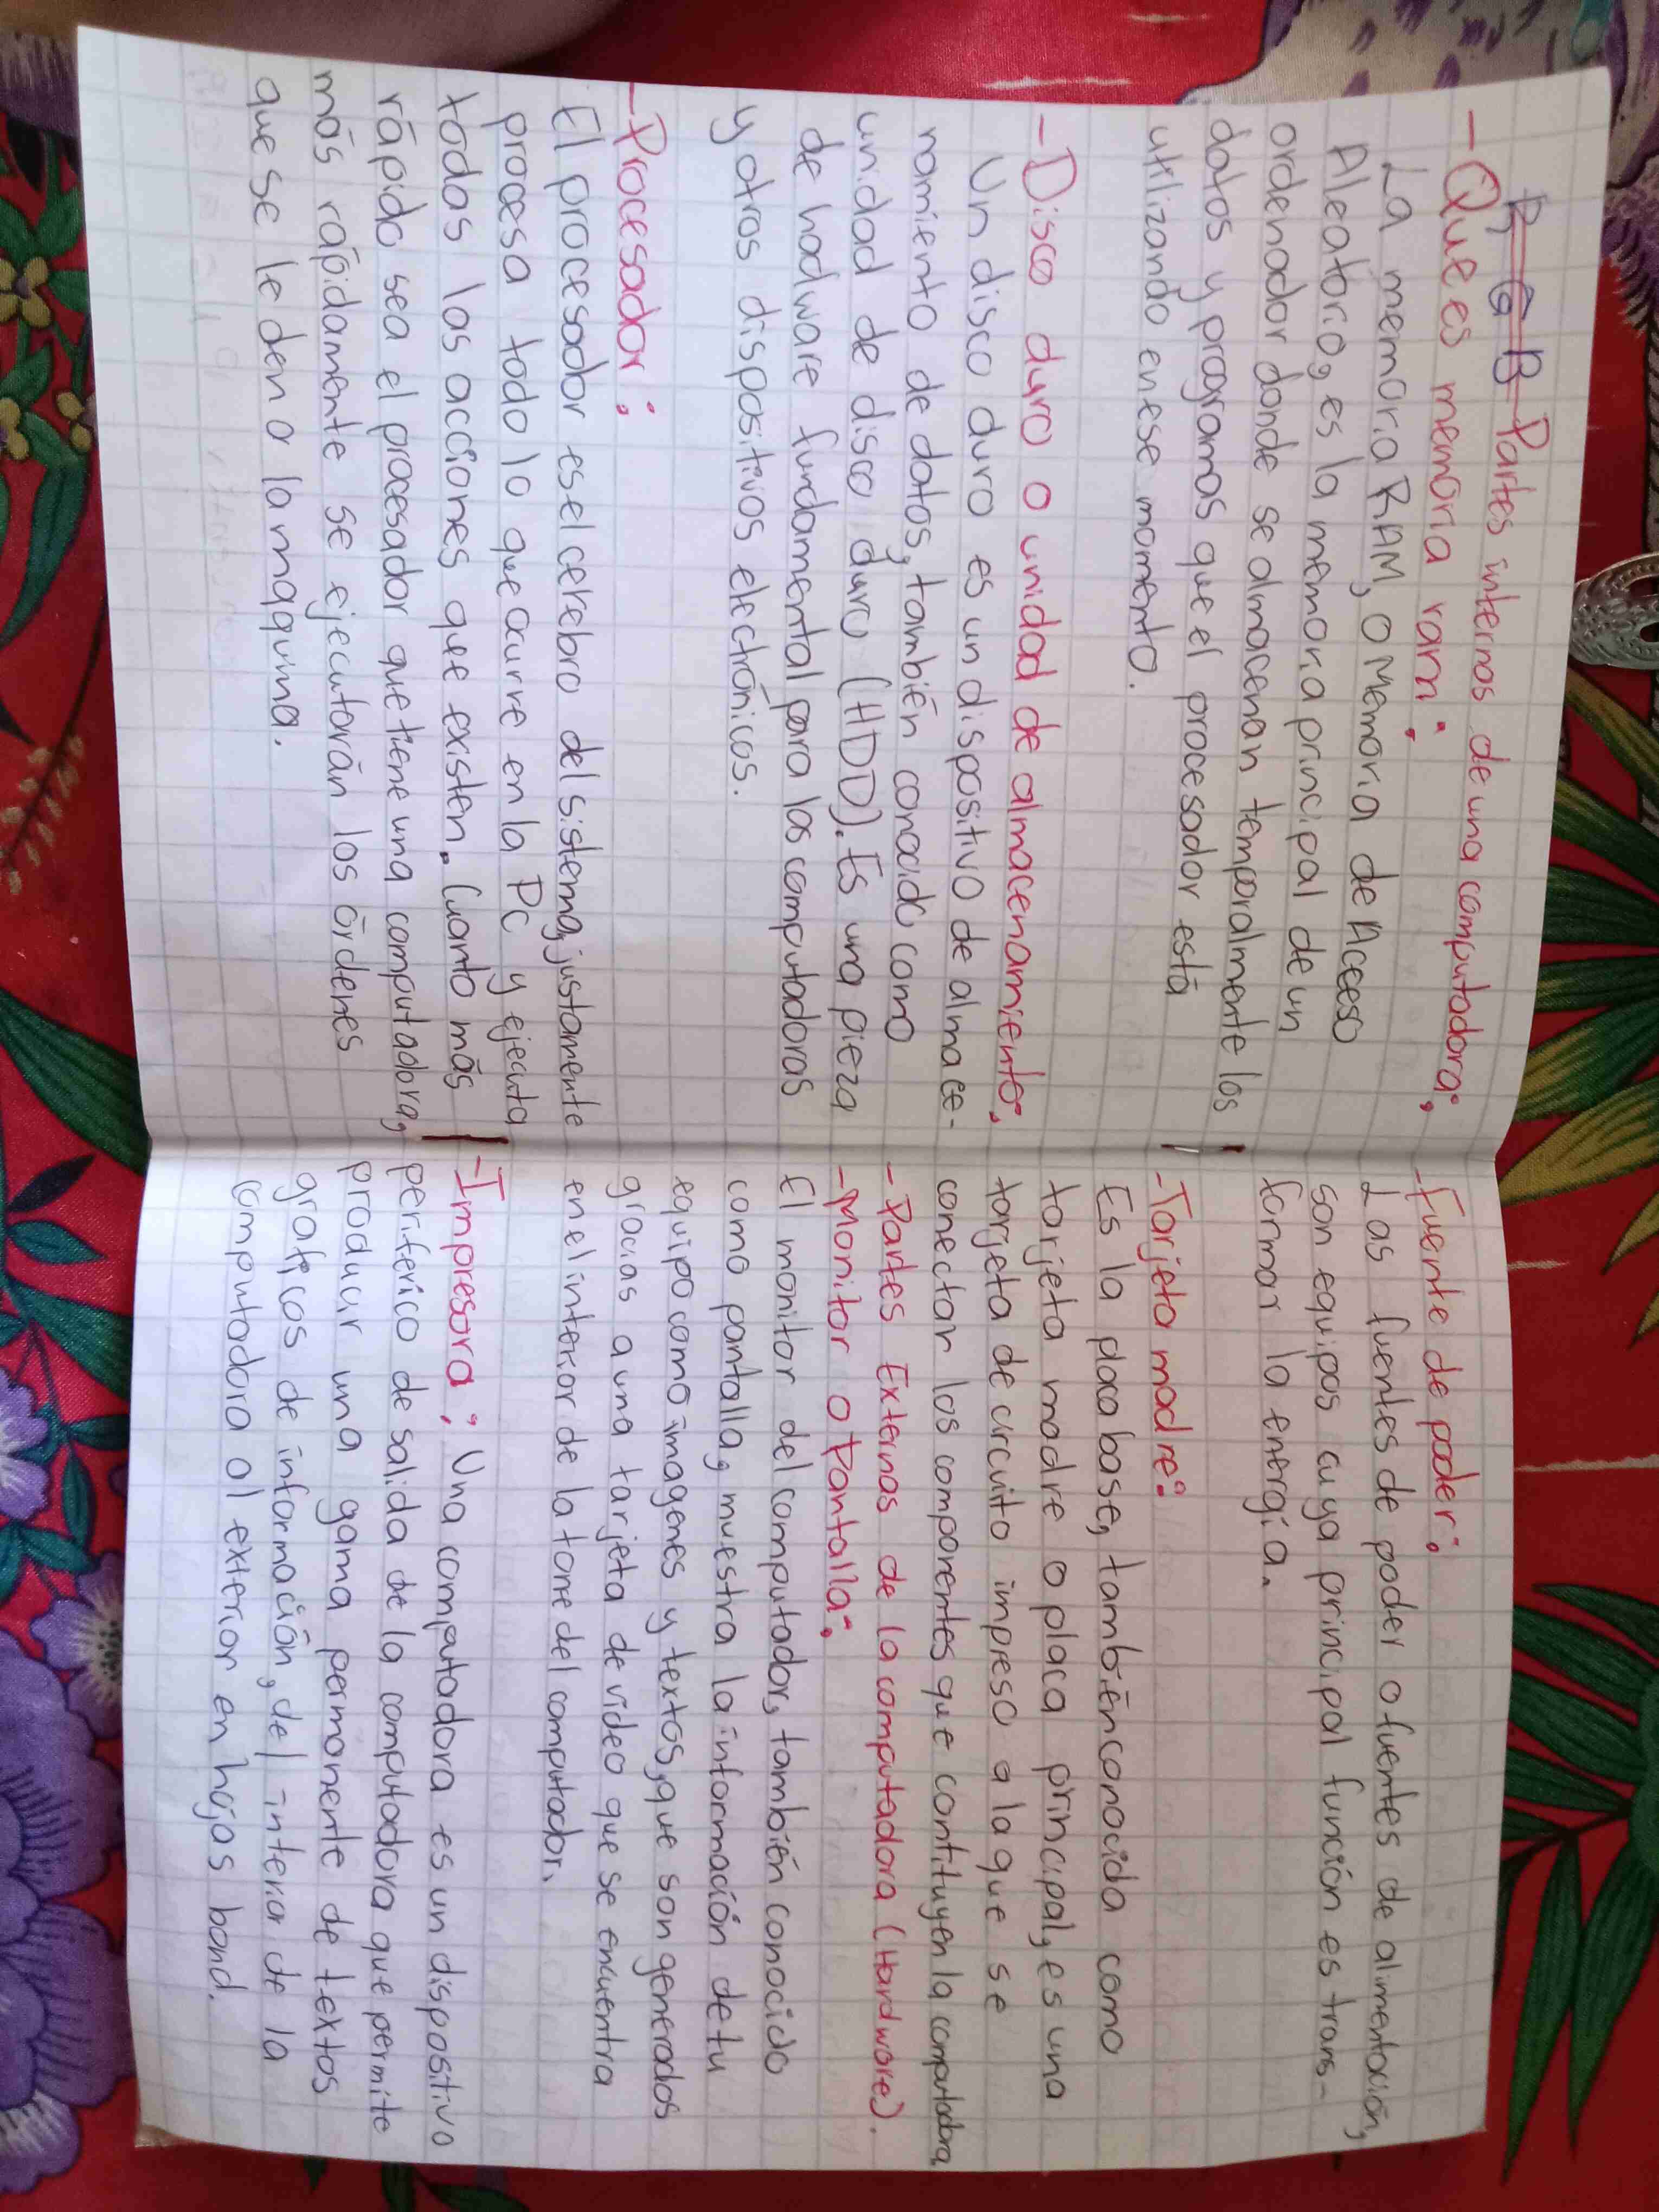 R G B Partes internas de una computadora:
- Que es memória ram:
La memoria RAM, o Memoria de Acceso
Aleatorio, es la memoria principal de un
ordenador donde se almacenan temporalmente los
datos y programas que el procesador está
utilizando en ese momento.
- Disco duro o unidad de almacenamiento:
Un disco duro es un dispositivo de almace-
namiento de datos, también conocido como
unidad de disco duro (HDD). Es una pieza
de hadware fundamental para las computadoras
y otros dispositivos electrónicos.
- Procesador:
El procesador es el cerebro del sistema, justamente
procesa todo lo que ocurre en la PC y ejecuta
todas las acciones que existen. Cuanto más
rápido sea el procesador que tiene una computadora,
más rápidamente se ejecutarán las órdenes
que se le den a la maquina.
- Fuente de poder:
Las fuentes de poder o fuentes de alimentación,
son equipos cuya principal función es trans-
formar la energía.
- Tarjeta madre:
Es la placa base, también conocida como
tarjeta madre o placa principal, es una
tarjeta de circuito impreso a la que se
conectan los componentes que contituyen la computadora
- Partes Externas de la computadora (Hardware).
- Monitor o Pantalla:
El monitor del computador, también conocido
como pantalla, muestra la información de tu
equipo como imagenes y textos, que son generados
gracias a una tarjeta de vídeo que se encuentra
en el interior de la torre del computador.
- Impresora: Una computadora es un dispositivo
periférico de salida de la computadora que permite
producir una gama permanente de textos
graficos de información, del interior de la
computadora al exterior en hojas bond.